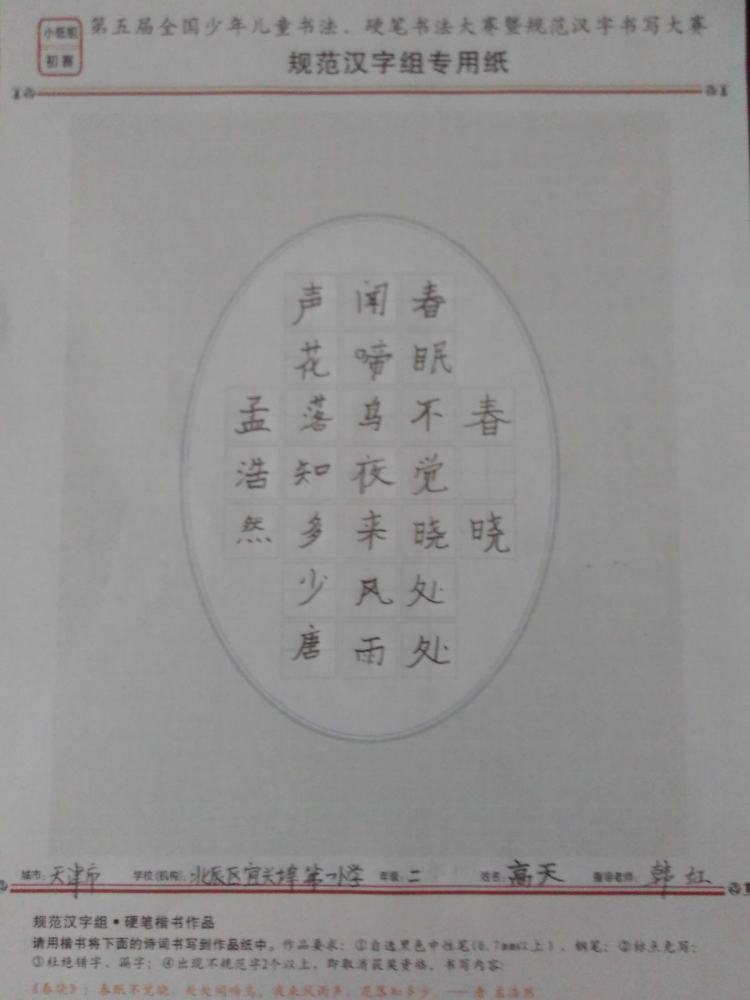 小低组
初赛
第五届全国少年儿童书法、硬笔书法大赛暨规范汉字书写大赛
规范汉字组专用纸
春晓
春眠不觉晓处处
闻啼鸟夜来风雨
声花落知多少唐
孟浩然
城市：天津市 学校(机构)：北辰区宜兴埠第一小学 年级：二 姓名：高天 指导老师：韩红
规范汉字组·硬笔楷书作品
请用楷书将下面的诗词书写到作品纸中。作品要求：①自选黑色中性笔(0.7mm以上)、钢笔；②标点免写；
③杜绝错字、漏字；④出现不规范字2个以上，即取消获奖资格。书写内容：
《春晓》：春眠不觉晓，处处闻啼鸟。夜来风雨声，花落知多少。—— 唐 孟浩然